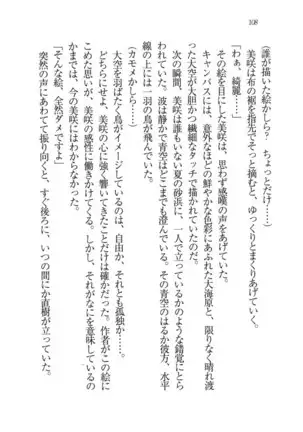 108
誰が描いた絵かしら？　ちょっとだけ……」
美咲は布の裾を指先でそっと摘むと、ゆっくりとまくりあげていく。
「わぁ、綺麗……」
その絵を目にした美咲は、思わず感嘆の声をあげていた。
キャンバスには、意外なほどの鮮やかな色彩にあふれた大海原と、限りなく晴れ渡
った大空が大胆かつ繊細なタッチで描かれていたのだ。
次の瞬間、美咲は誰もいない夏の砂浜に、一人で立っているかのような錯覚にとら
われていた。波は静かで青空はどこまでも澄んでいる。その青空のはるか彼方、水平
線の上には一羽の鳥が飛んでいた。
（カモメかしら……）
大空を羽ばたく鳥がイメージしているのは、自由か、それとも孤独か……。
どちらにせよ、美咲の心に強く響いてきたことだけは確かだった。作者がこの絵に
こめた思いが、美咲の感性に働きかけてくる。しかし、それがなにを意味しているの
かまでは、今の美咲にはわからなかった。
「そんな絵、全然ダメですよ」
突然の声にあわてて振り向くと、すぐ後ろに、いつの間にか直樹が立っていた。